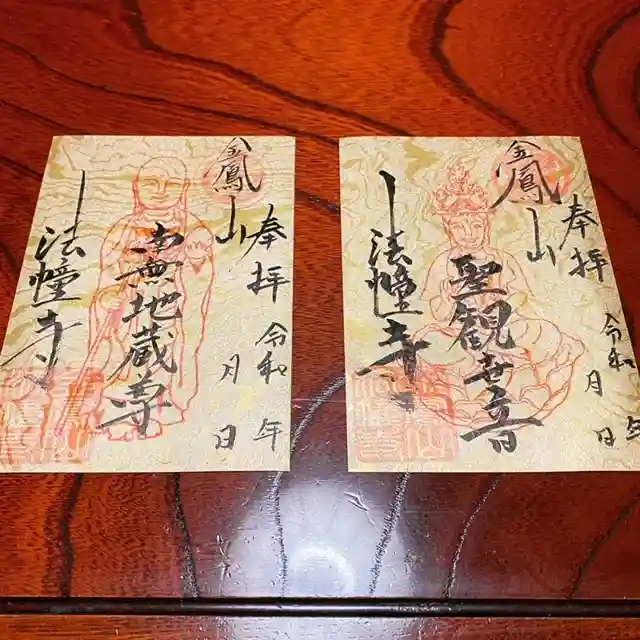 奉拝 令和 年 月 日
金鳳山
南無地蔵尊
法幢寺
奉拝 令和 年 月 日
金鳳山
聖観世音
法幢寺